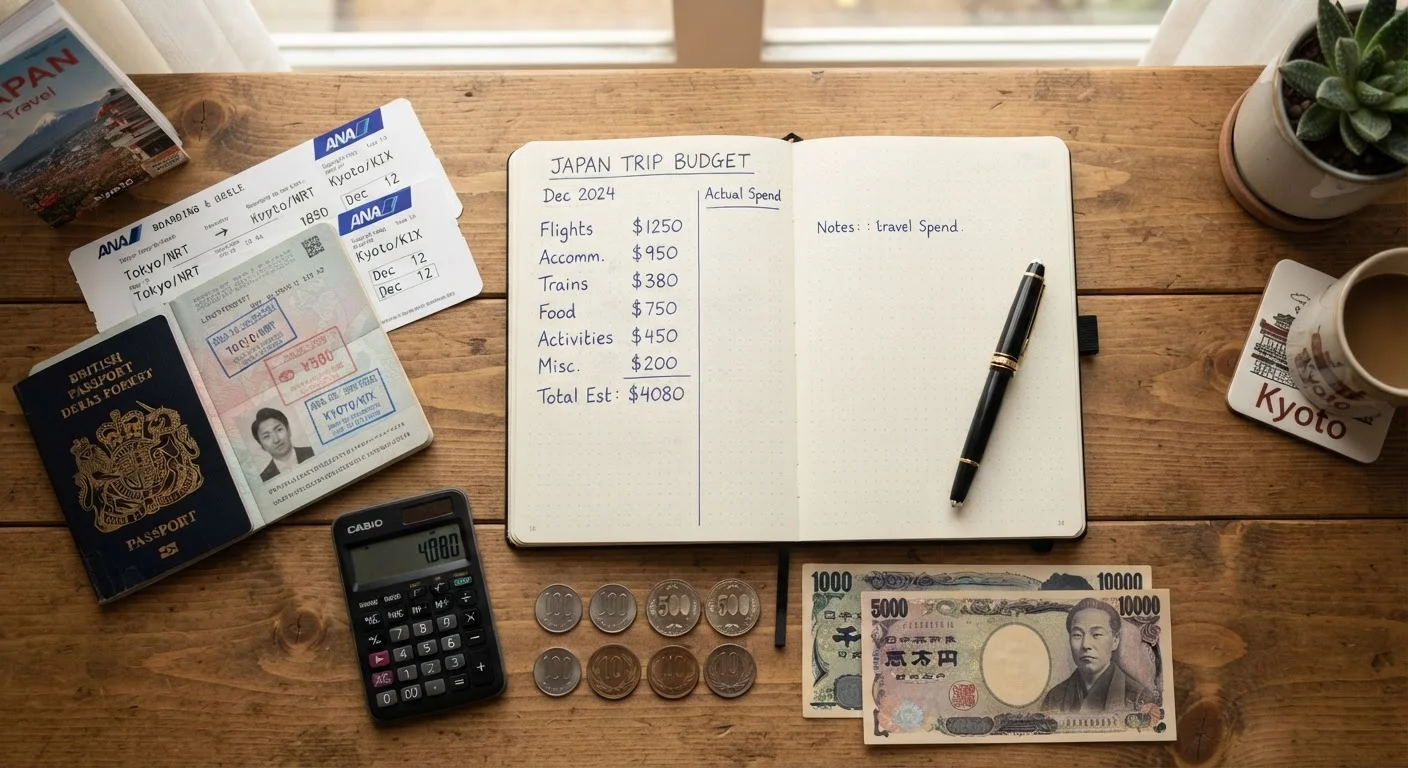 JAPAN TRIP BUDGET
Dec 2024
Actual Spend
Flights $1250
Accomm. $950
Trains $380
Food $750
Activities $450
Misc. $200
Total Est: $4080
Notes: : travel Spend.
APAN
Travel
ANA
ANA
Kyoto/KIX
Dec 12
ANA BOARDING
Tokyo/NRT
1890
Tokyo/NRT
Kyoto/KIX
Dec 12
Dec 12
BRITISH
PASSPORT
PASSPORT
KYOTO/KIX
CASIO
4080
7 8 9
4 5 6
1 2 3
0 00 .
100 100 500 500
100 10 10 10
1000 10000
千
5000 10000
万円
KYOTO
Kyoto